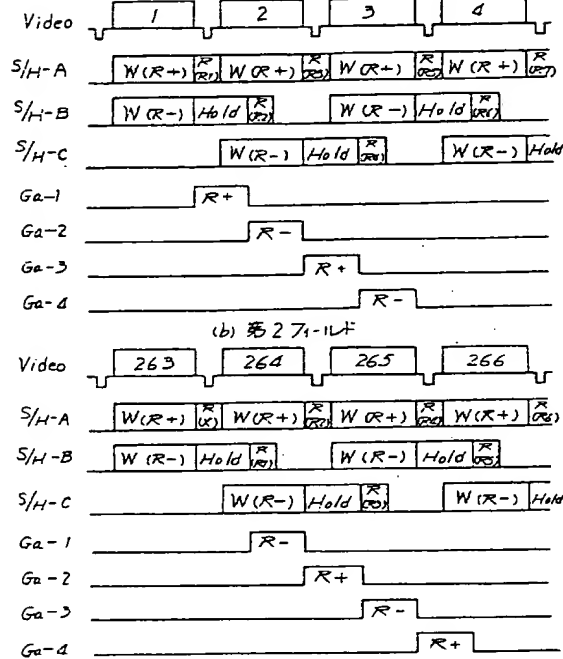 Video 1 2 3 4
S/H-A W(R+) R (R1) W(R+) R (R3) W(R+) R (R5) W(R+) R (R7)
S/H-B W(R-) Hold R (R2) W(R-) Hold R (R6)
S/H-C W(R-) Hold R W(R-) Hold
Ga-1 R+
Ga-2 R-
Ga-3 R+
Ga-4 R-
(b) 第2フィールド
Video 263 264 265 266
S/H-A W(R+) R (X) W(R+) R (R2) W(R+) R (R4) W(R+) R (R6)
S/H-B W(R-) Hold R (R1) W(R-) Hold R (R5)
S/H-C W(R-) Hold R (R3) W(R-) Hold
Ga-1 R-
Ga-2 R+
Ga-3 R-
Ga-4 R+